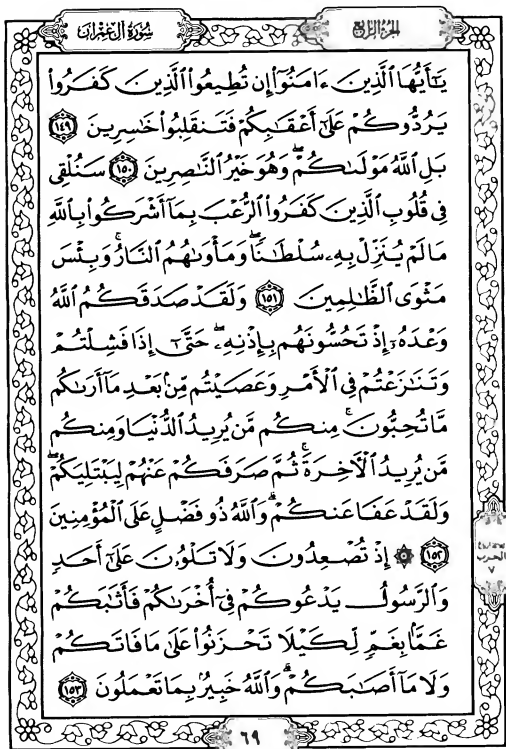 سُورَةُ آلِ عِمْرَانَ
الجُزْءُ الرَّابِعُ
يَٰٓأَيُّهَا ٱلَّذِينَ ءَامَنُوٓا۟ إِن تُطِيعُوا۟ ٱلَّذِينَ كَفَرُوا۟
يَرُدُّوكُمْ عَلَىٰٓ أَعْقَٰبِكُمْ فَتَنقَلِبُوا۟ خَٰسِرِينَ ١٤٩
بَلِ ٱللَّهُ مَوْلَىٰكُمْ ۖ وَهُوَ خَيْرُ ٱلنَّٰصِرِينَ ١٥٠ سَنُلْقِى
فِى قُلُوبِ ٱلَّذِينَ كَفَرُوا۟ ٱلرُّعْبَ بِمَآ أَشْرَكُوا۟ بِٱللَّهِ
مَا لَمْ يُنَزِّلْ بِهِۦ سُلْطَٰنًا ۖ وَمَأْوَىٰهُمُ ٱلنَّارُ ۚ وَبِئْسَ
مَثْوَى ٱلظَّٰلِمِينَ ١٥١ وَلَقَدْ صَدَقَكُمُ ٱللَّهُ
وَعْدَهُۥٓ إِذْ تَحُسُّونَهُم بِإِذْنِهِۦ ۖ حَتَّىٰٓ إِذَا فَشِلْتُمْ
وَتَنَٰزَعْتُمْ فِى ٱلْأَمْرِ وَعَصَيْتُم مِّنۢ بَعْدِ مَآ أَرَىٰكُم
مَّا تُحِبُّونَ ۚ مِنكُم مَّن يُرِيدُ ٱلدُّنْيَا وَمِنكُم
مَّن يُرِيدُ ٱلْءَاخِرَةَ ۚ ثُمَّ صَرَفَكُمْ عَنْهُمْ لِيَبْتَلِيَكُمْ ۖ
وَلَقَدْ عَفَا عَنكُمْ ۗ وَٱللَّهُ ذُو فَضْلٍ عَلَى ٱلْمُؤْمِنِينَ
١٥٢ ۞ إِذْ تُصْعِدُونَ وَلَا تَلْوُۥنَ عَلَىٰٓ أَحَدٍ
وَٱلرَّسُولُ يَدْعُوكُمْ فِىٓ أُخْرَىٰكُمْ فَأَثَٰبَكُمْ
غَمًّۢا بِغَمٍّ لِّكَيْلَا تَحْزَنُوا۟ عَلَىٰ مَا فَاتَكُمْ
وَلَا مَآ أَصَٰبَكُمْ ۗ وَٱللَّهُ خَبِيرٌۢ بِمَا تَعْمَلُونَ ١٥٣
الحزب
٧
٦٩